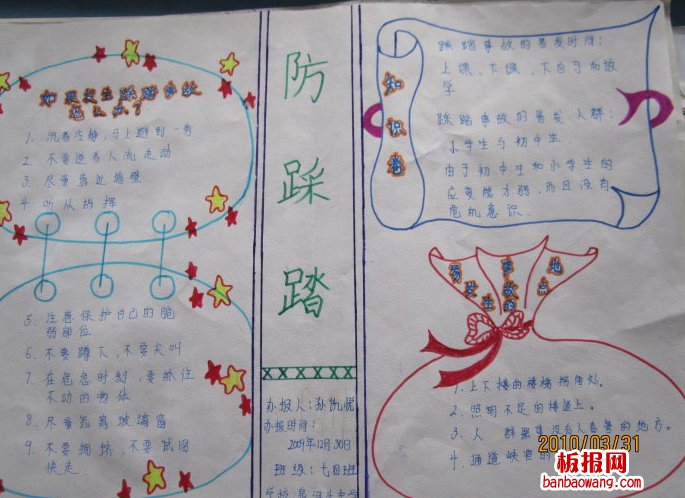 如果发生踩踏事故
怎么办?
1. 沉着冷静,马上蹲到一旁
2. 不要逆着人流走动
3. 尽量靠近墙壁
4. 听从指挥
5. 注意保护自己的脆
弱部位
6. 不要蹲下,不要尖叫
7. 在危急时刻,要抓住
不动的物体
8. 尽量远离玻璃窗
9. 不要拥挤,不要试图
快走
防
踩
踏
办报人:孙凯悦
办报时间:
2009年12月30日
班级:七四班
知识卷
踩踏事故的易发时间:
上课、下课、下自习和放
学
踩踏事故的易发人群:
小学生与初中生
由于初中生和小学生的
应变能力弱,而且没有
危机意识.
易发生事故的地点
1. 上下楼的楼梯拐角处.
2. 照明不足的楼道上.
3. 人群聚集没有人看管的地方.
4. 通道狭窄的
2010/03/31
板报网
banbaowang.com